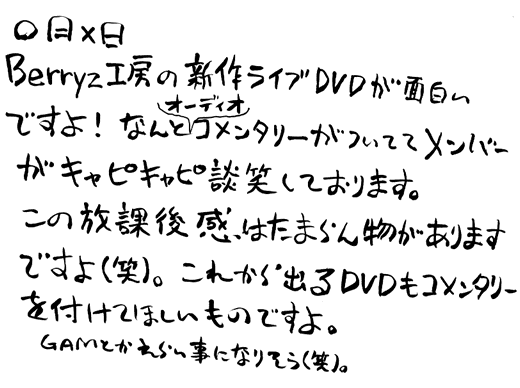 〇月×日
Berryz工房の新作ライブDVDが面白い
ですよ！なんとオーディオコメンタリーがついててメンバー
がキャピキャピ談笑しております。
この放課後感はたまらん物があります
ですよ（笑）。これから出るDVDもコメンタリー
を付けてほしいものですよ。
GAMとかえらい事になりそう（笑）。